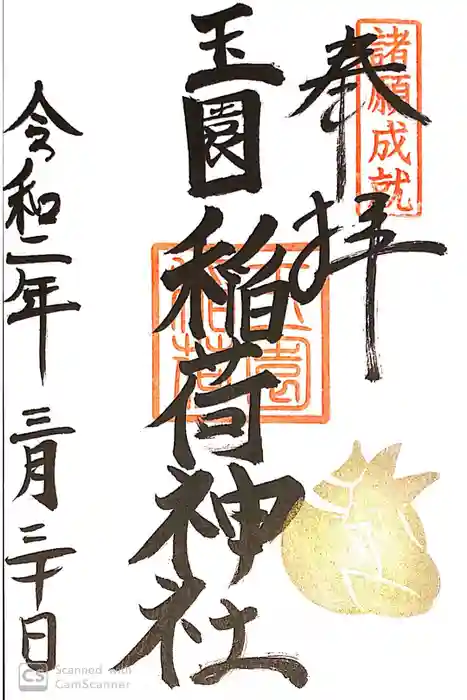 諸願成就
奉拝
玉園稲荷神社
玉園稲荷
令和二年 三月三十日
Scanned with
CamScanner
CS